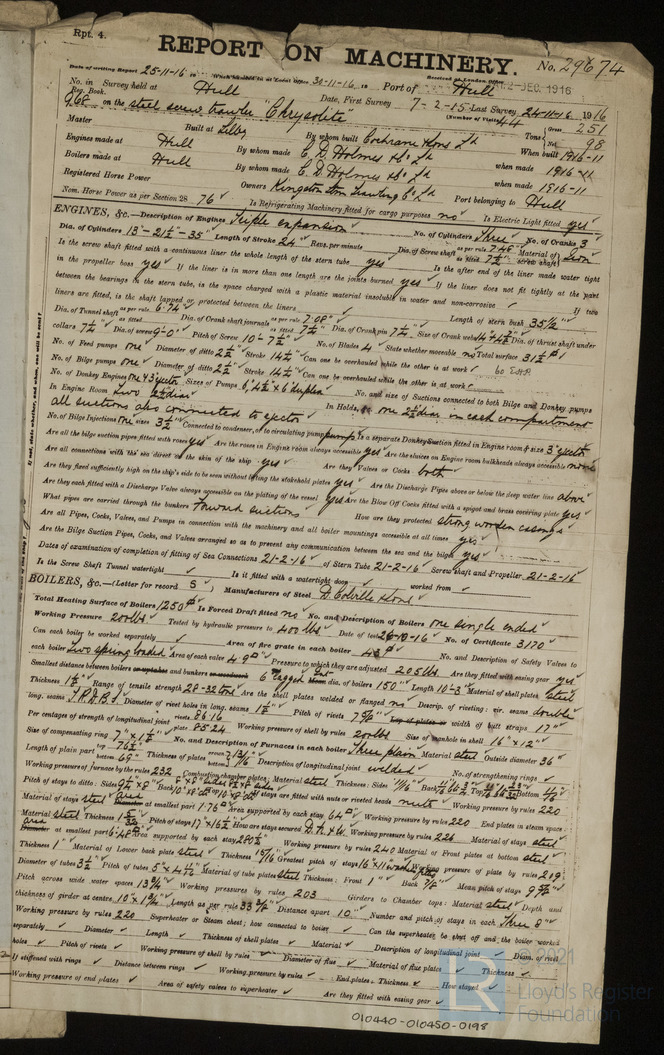 Rpt. 4.
REPORT ON MACHINERY. No. 29674
Date of writing Report 25-11-16 When handed in at Local Office 30-11-16 Port of Hull
Received at London Office DEC. 1916
No. in Survey held at Hull Date, First Survey 7-2-15 Last Survey 24-11-16 1916
Reg. Book. (Number of Visits 44
968 on the steel screw trawler "Chrysolite" Tons Gross 251 Net 98
Master Built at Selby By whom built Cochrane & Sons Ld When built 1916-11
Engines made at Hull By whom made C. D. Holmes & Co Ld when made 1916-11
Boilers made at Hull By whom made C. D. Holmes & Co Ld when made 1916-11
Registered Horse Power Owners Kingston Steam Trawling Co Ld Port belonging to Hull
Nom. Horse Power as per Section 28 76 Is Refrigerating Machinery fitted for cargo purposes no Is Electric Light fitted yes
ENGINES, &c.—Description of Engines Triple expansion No. of Cylinders Three No. of Cranks 3
Dia. of Cylinders 13"-21½"-35" Length of Stroke 24 Revs. per minute Dia. of Screw shaft as per rule 7.48" as fitted 7½" Material of screw shaft Iron
Is the screw shaft fitted with a continuous liner the whole length of the stern tube yes Is the after end of the liner made water tight
in the propeller boss yes If the liner is in more than one length are the joints burned yes If the liner does not fit tightly at the part
between the bearings in the stern tube, is the space charged with a plastic material insoluble in water and non-corrosive If two
liners are fitted, is the shaft lapped or protected between the liners Length of stern bush 35½"
Dia. of Tunnel shaft as per rule 6.74 as fitted Dia. of Crank shaft journals as per rule 7.08" as fitted 7¼" Dia. of Crank pin 7½" Size of Crank webs Dia. of thrust shaft under
collars 7¼" Dia. of screw 9-0" Pitch of Screw 10-7½" No. of Blades 4 State whether moveable no Total surface 31½
No. of Feed pumps one Diameter of ditto 2½" Stroke 14½" Can one be overhauled while the other is at work
No. of Bilge pumps one Diameter of ditto 2½" Stroke 14½" Can one be overhauled while the other is at work
No. of Donkey Engines one & ejector Sizes of Pumps 6", 4½" x 6" duplex No. and size of Suctions connected to both Bilge and Donkey pumps
In Engine Room Two 2½" dia In Holds, &c. one 2½" dia in each compartment
all suctions also connected to ejector
No. of Bilge Injections one sizes 3½" Connected to condenser, or to circulating pump pump Is a separate Donkey Suction fitted in Engine room & size 3" ejector
Are all the bilge suction pipes fitted with roses yes Are the roses in Engine room always accessible yes Are the sluices on Engine room bulkheads always accessible none
Are all connections with the sea direct on the skin of the ship yes Are they Valves or Cocks both
Are they fixed sufficiently high on the ship's side to be seen without lifting the stokehold plates yes Are the Discharge Pipes above or below the deep water line above
Are they each fitted with a Discharge Valve always accessible on the plating of the vessel yes Are the Blow Off Cocks fitted with a spigot and brass covering plate yes
What pipes are carried through the bunkers Forward suctions How are they protected strong wooden casings
Are all Pipes, Cocks, Valves, and Pumps in connection with the machinery and all boiler mountings accessible at all times yes
Are the Bilge Suction Pipes, Cocks, and Valves arranged so as to prevent any communication between the sea and the bilges yes
Dates of examination of completion of fitting of Sea Connections 21-2-16 of Stern Tube 21-2-16 Screw shaft and Propeller 21-2-16
Is the Screw Shaft Tunnel watertight Is it fitted with a watertight door worked from
BOILERS, &c.—(Letter for record S) Manufacturers of Steel D. Colville & Sons
Total Heating Surface of Boilers 1250 Is Forced Draft fitted no No. and Description of Boilers one single ended
Working Pressure 200lbs Tested by hydraulic pressure to 400 lbs Date of test No. of Certificate 3170
Can each boiler be worked separately Area of fire grate in each boiler No. and Description of Safety Valves to
each boiler Two spring loaded Area of each valve 4.9 Pressure to which they are adjusted 205lbs Are they fitted with easing gear yes
Smallest distance between boilers or uptakes and bunkers or woodwork 6" Mean dia. of boilers 150" Length 10-3 Material of shell plates steel
Thickness Range of tensile strength 28-32 tons Are the shell plates welded or flanged no Descrip. of riveting: cir. seams double
long. seams T.R.D.B.S Diameter of rivet holes in long. seams Pitch of rivets Lap of plates or width of butt straps 17"
Per centages of strength of longitudinal joint rivets 86.16 plate 85.24 Working pressure of shell by rules 200lbs Size of manhole in shell 16" x 12"
Size of compensating ring 7" x 1½" No. and Description of Furnaces in each boiler Three plain Material steel Outside diameter 36"
Length of plain part top 76½" bottom 69" Thickness of plates Description of longitudinal joint welded No. of strengthening rings
Working pressure of furnace by the rules 232 Combustion chamber plates: Material steel Thickness: Sides Back Top Bottom
Pitch of stays to ditto: Sides Back Top If stays are fitted with nuts or riveted heads nuts Working pressure by rules 220
Material of stays steel Diameter at smallest part 1.76 Area supported by each stay 64 Working pressure by rules 220 End plates in steam space:
Material steel Thickness Pitch of stays 17" x 16½" How are stays secured D.N.&W. Working pressure by rules 226 Material of stays steel
Diameter at smallest part Area supported by each stay 280½ Working pressure by rules 240 Material of Front plates at bottom steel
Thickness 1" Material of Lower back plate steel Thickness 15/16 Greatest pitch of stays Working pressure of plate by rules 219
Diameter of tubes 3½" Pitch of tubes Material of tube plates steel Thickness: Front 1" Back 7/8" Mean pitch of stays
Pitch across wide water spaces 13¾" Working pressures by rules 203 Girders to Chamber tops: Material steel Depth and
thickness of girder at centre 10" x 1¾" Length as per rule Distance apart 10" Number and pitch of stays in each Three 8"
Working pressure by rules 220 Superheater or Steam chest; how connected to boiler Can the superheater be shut off and the boiler worked
separately Diameter Length Thickness of shell plates Material Description of longitudinal joint Diam. of rivet
holes Pitch of rivets Working pressure of shell by rules Diameter of flue Material of flue plates Thickness
If stiffened with rings Distance between rings Working pressure by rules End plates: Thickness How stayed
Working pressure of end plates Area of safety valves to superheater Are they fitted with easing gear
010440-010450-0198
2021
Lloyd's Register
Foundation